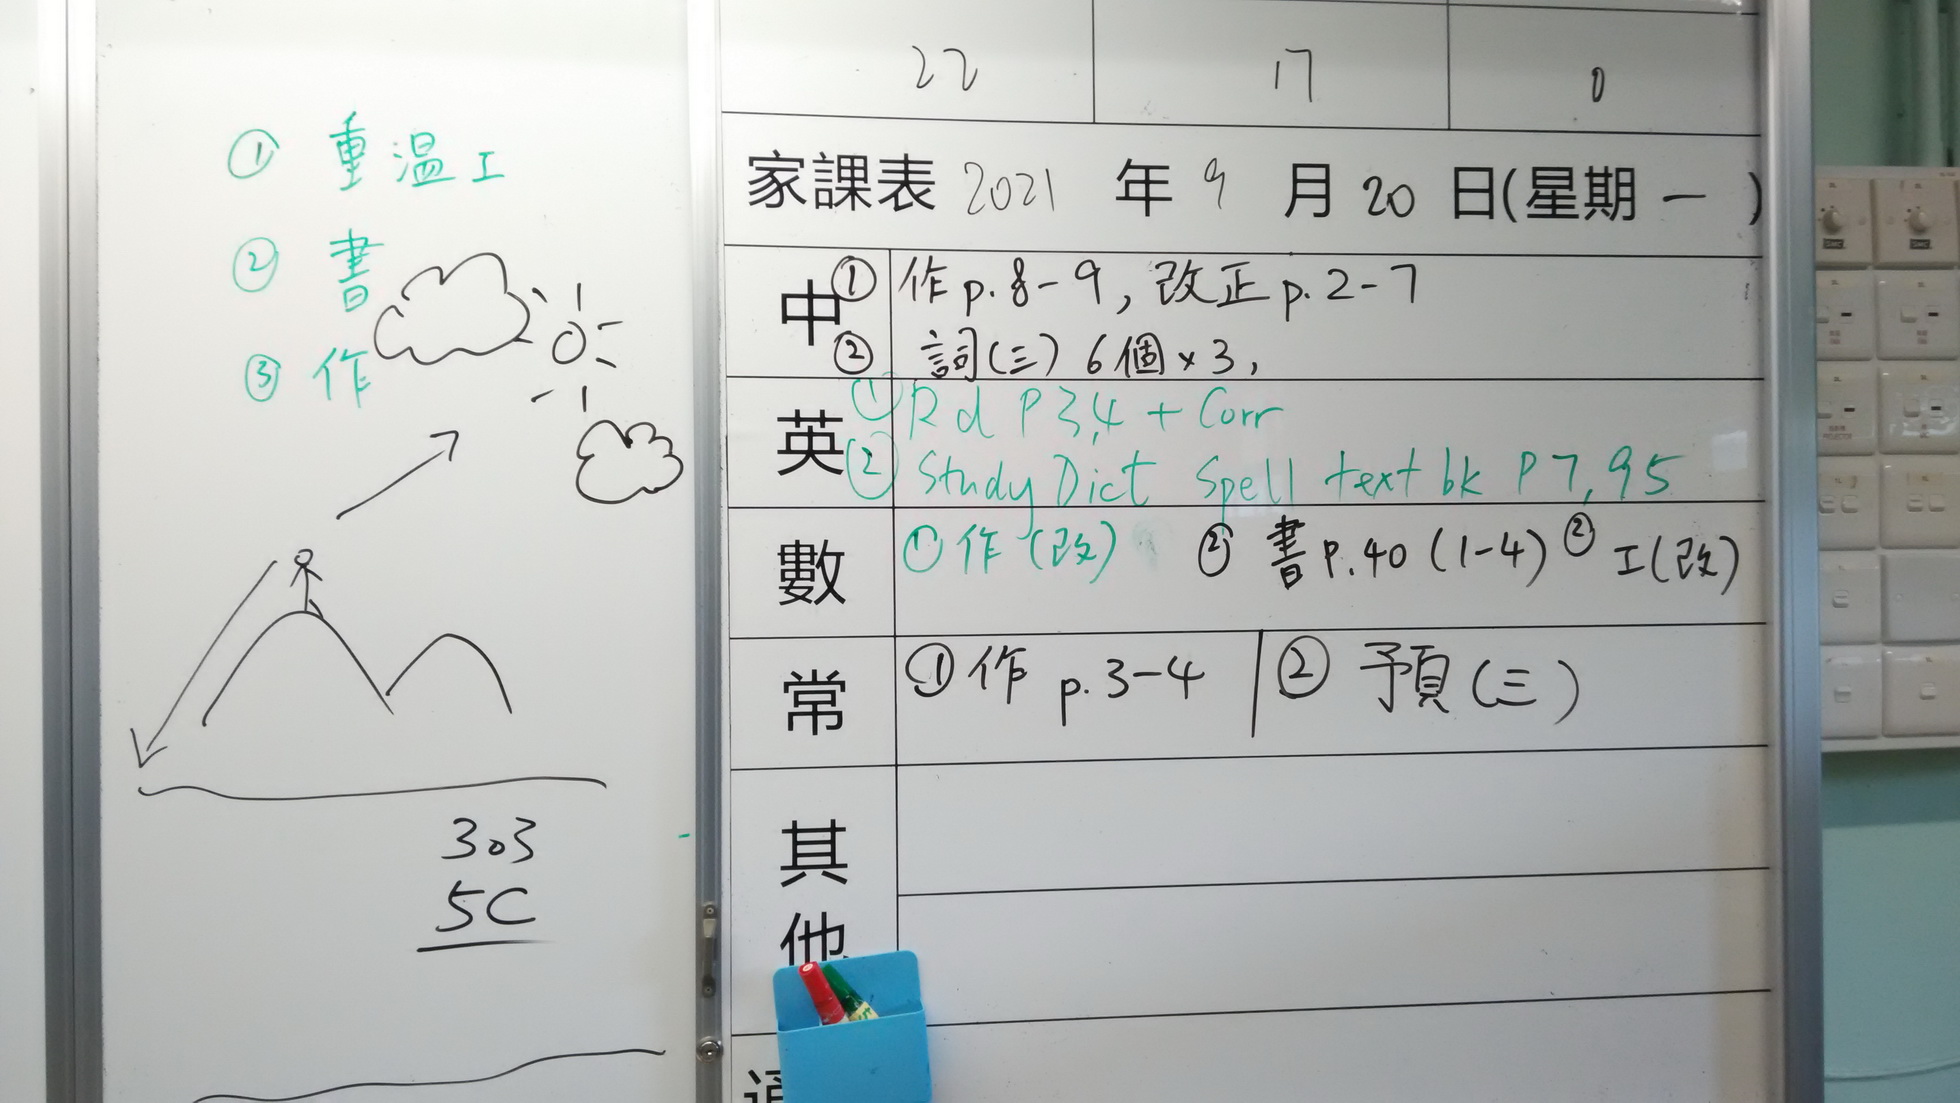 ① 重溫工
② 書
③ 作
303
5C
22 17 0
家課表 2021 年 9 月 20 日(星期 一 )
中 ① 作 p.8-9, 改正 p.2-7
② 詞(三) 6個×3,
英 ① Rd P3,4 + Corr
② Study Dict Spell text bk P7,95
數 ① 作(改) ② 書 P.40 (1-4) ② 工(改)
常 ① 作 p.3-4 | ② 預(三)
其
他